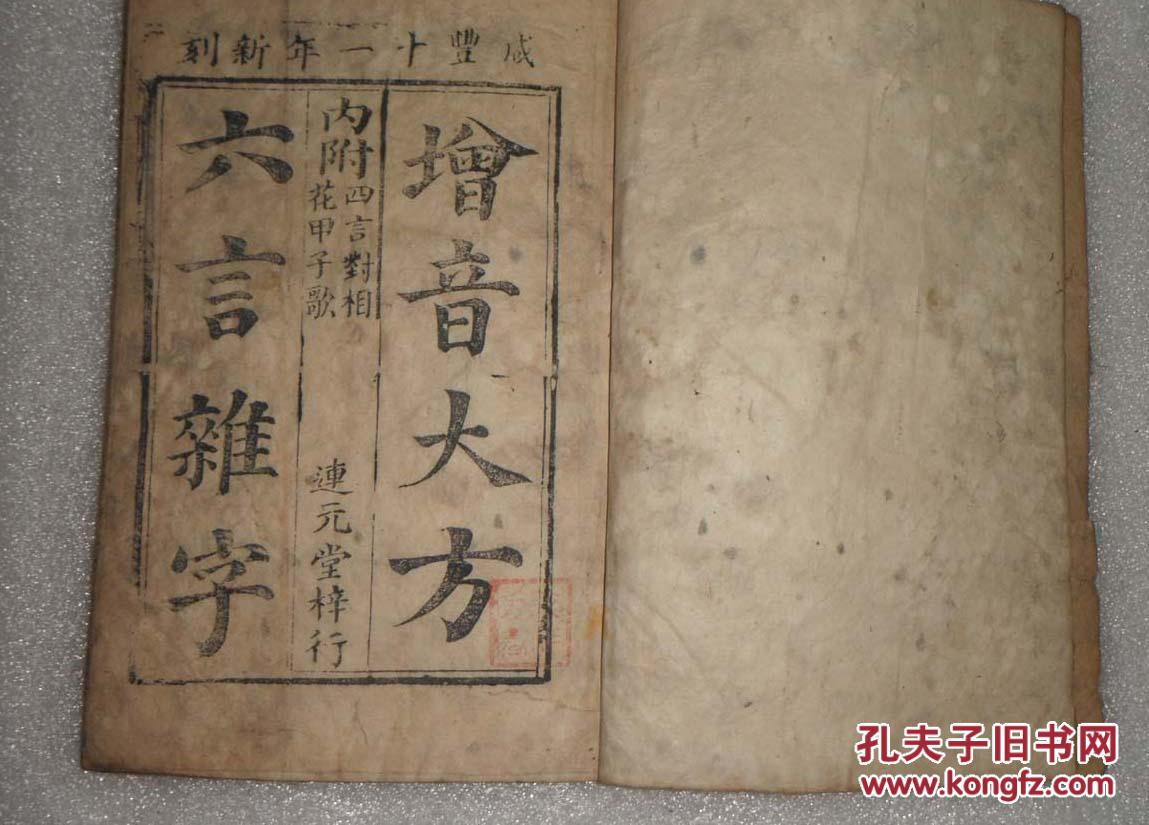 咸豐十一年新刻
增音大方
內附
四言對相
花甲子歌
連元堂梓行
六言雜字
孔夫子旧书网
www.kongfz.com